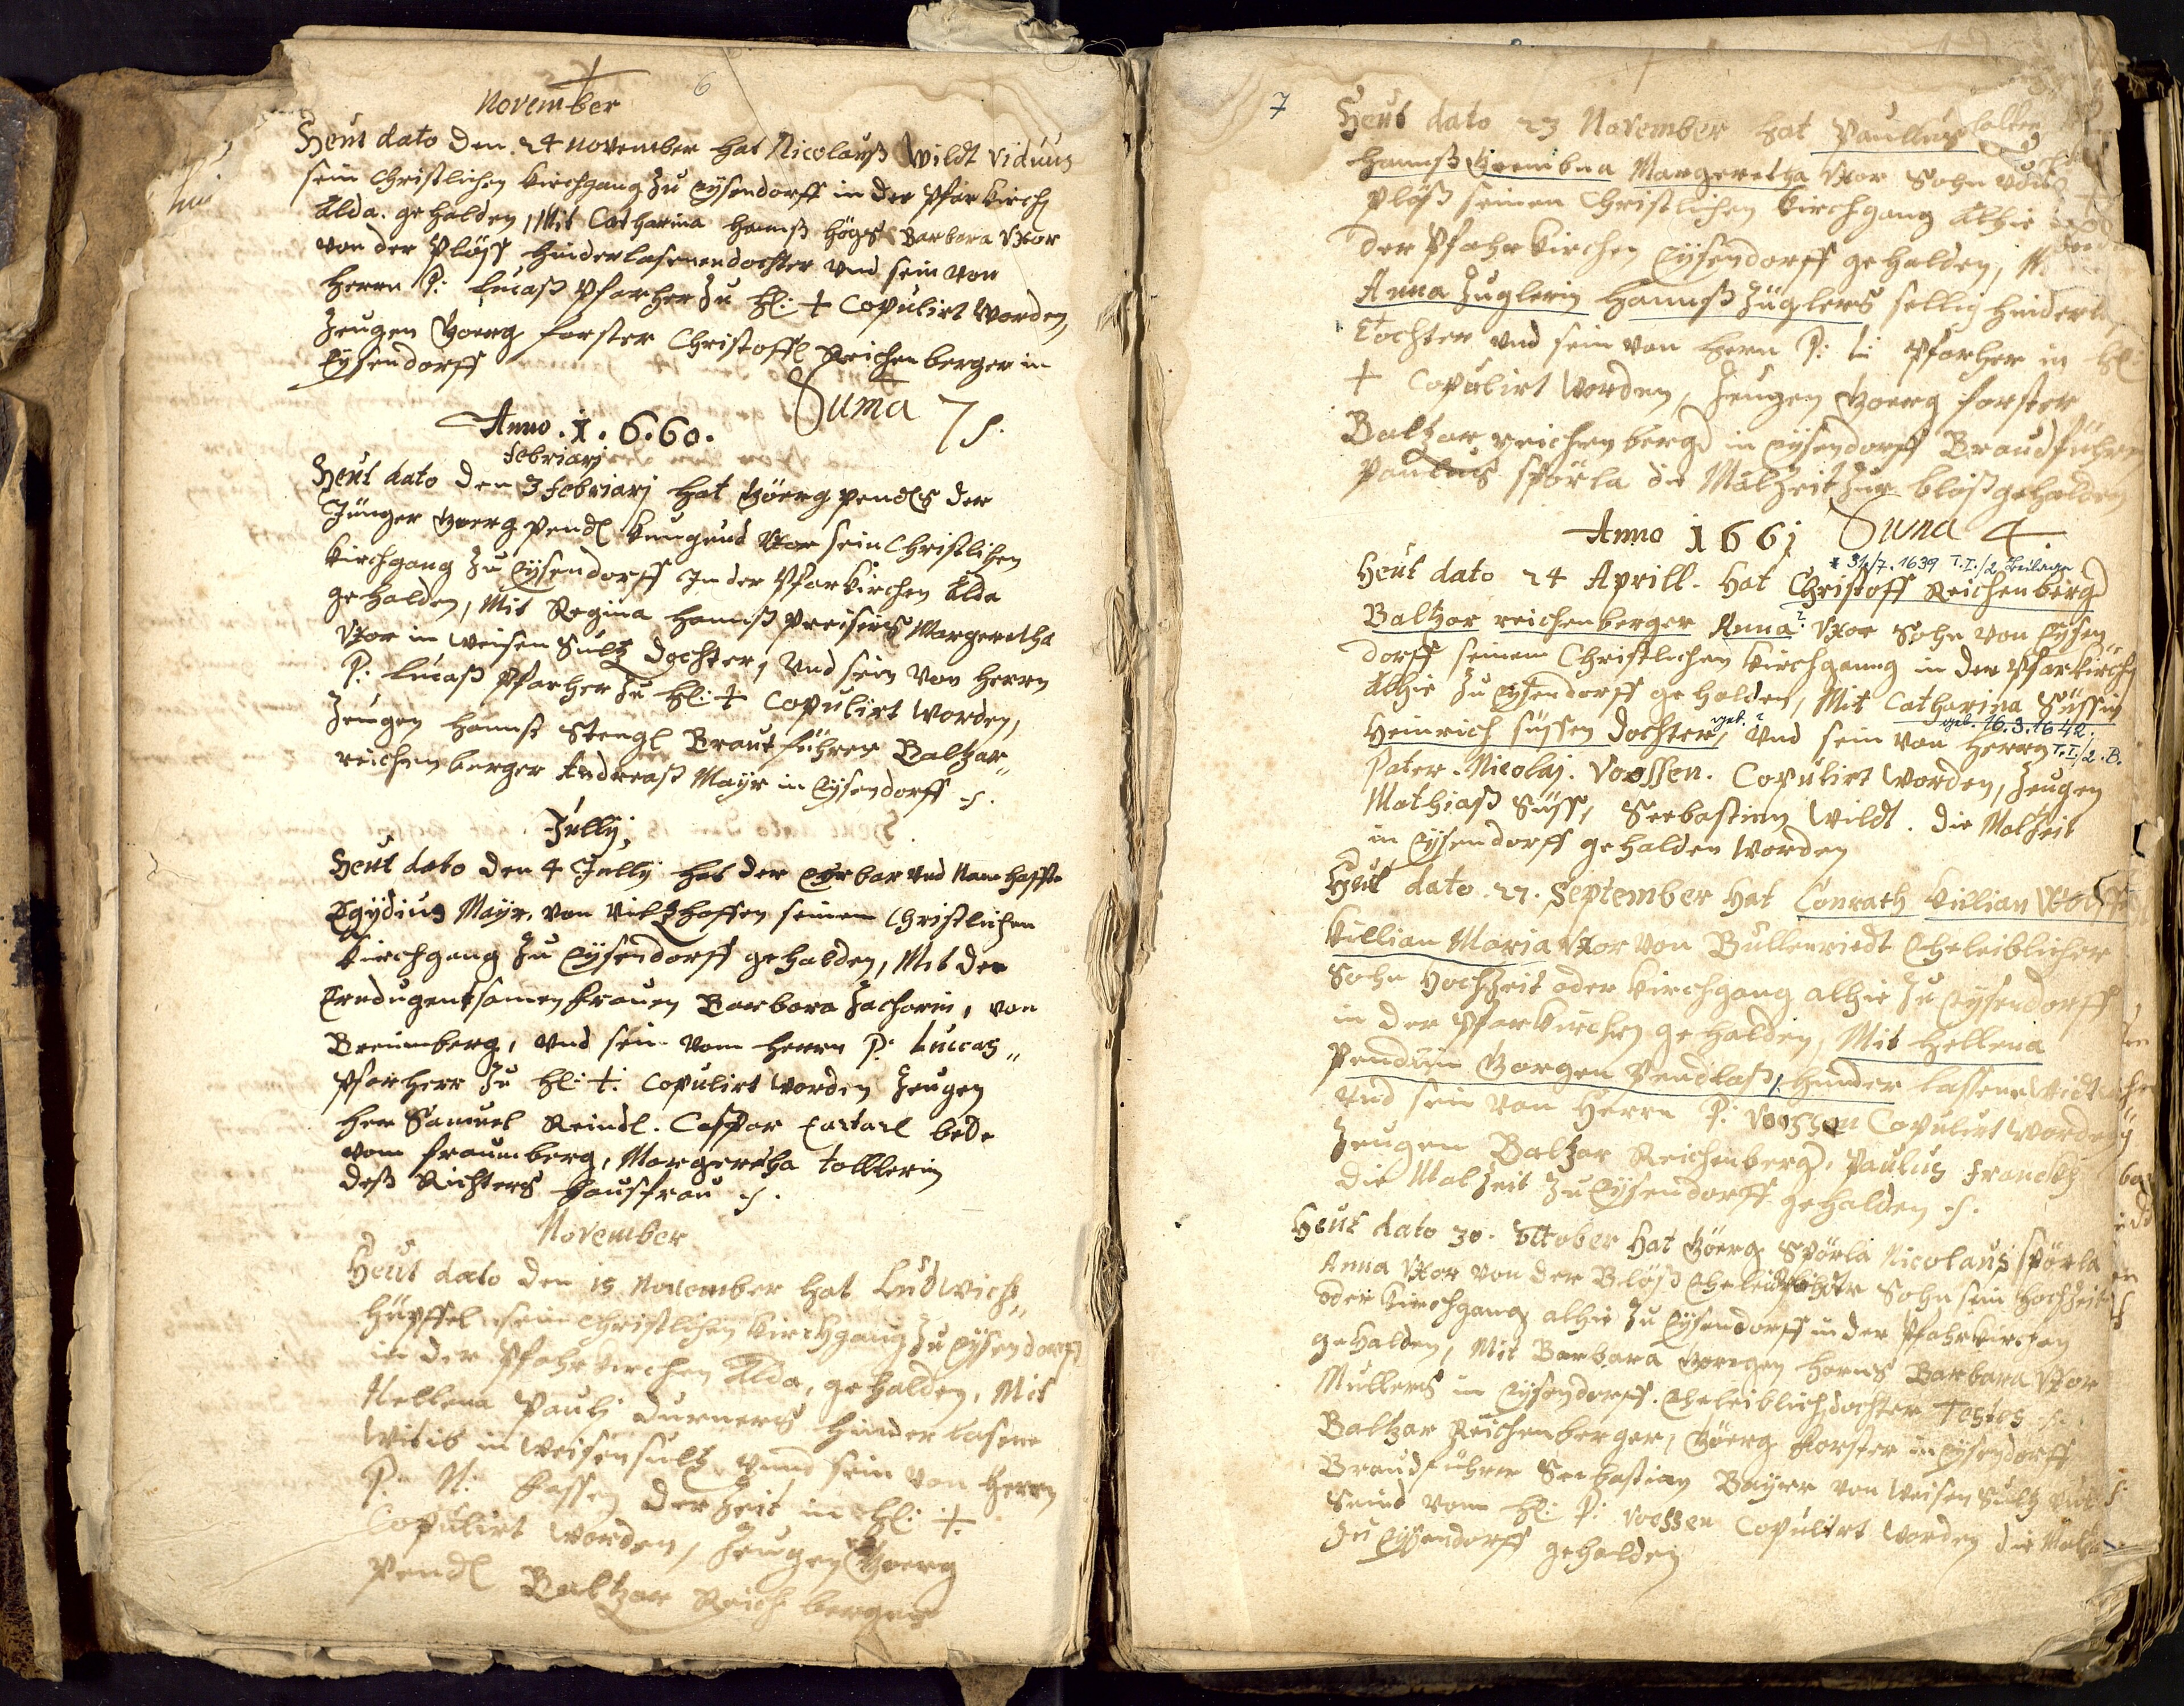 6
November
Heut dato den 24 november hat Nicolauß Wildt viduus
sein Christlichen Kirchgang zu Eysendorff in der Pfarkirch
Alda. gehalden, Mit Catharina hanß högs Barbara Vxor
von der Plöss hinderlasenen dochter vnd sein von
herrn P: Lucaß Pfarher zu hl: + Copulirt worden,
Zeugen Goerg forster Christoffl Reichenberger in
Eysendorff
Suma 7
Anno . 1 . 6 . 60 .
febriarj
Heut dato den 3 febriarj hat Göerg Pendls der
Jünger Goerg Pendl Kungund Vxor sein Christlichen
Kirchgang zu Eysendorff In der Pfarkirchen Alda
gehalden, Mit Regina hanß Preisers Margeretha
Vxor in Weisen Sultz dochter, Vnd sein von herrn
P: Lucaß Pfarher zu hl: + Copulirt worden,
Zeugen hanß Stengl Braut führer Baltzar
reichenberger Andreaß Mayr in Eysendorff
Jullij
Heut dato den 4 Jullij hat der Ehrbar vnd Namhaffte
Egydius Mayr, von Viltzhoffen seinen Christlichen
Kirchgang zu Eysendorff gehalden, Mit der
Erndugentsamen frauen Barbara Zacharin, von
vnd sein vom herrn P: Luccas
Pfarherr zu hl: + Copulirt worden Zeugen
her Samuel Reindl. Caspar bede
vom fraumberg, Margeretha tolllerin
deß Richters hausfrau
November
Heut dato den 15 November hat Ludwich
sein Christlichen Kirchgang zu Eysendorff
in der Pfahrkirchen Alda, gehalden, Mit
Hellena Paulj Durners hinderlasene
Witib in Weisensultz vnnd sein von herrn
P: N: fossen der Zeit in hl: +
Copulirt worden, Zeugen Goerg
Pendl Baltzar Reichbergers
7
Heut dato 23 November hat Paullus
hannß Margeretha Vxor Sohn
Plöß seinen Christlichen Kirchgang Alhie
der Pfahrkirchen Eysendorff gehalden,
Anna Zuglerin hannß Züglers sellig
tochter vnd sein von hern P: L: Pfarher in hl:
+ Copulirt worden, Zeugen Goerg forster
Baltzar reichenberg in Eysendorff Braudführer
Paulus spörla die Malzeit zur blöß gehalden
Anno 1661 Suma 4
* 31/7. 1639 T.I./2. Beilage
Heut dato 24 Aprill. hat Christoff Reichenberg
Baltzar reichenberger Anna ? Vxor Sohn von Eysen
dorff seinem Christlichen Kirchgang in der Pfarkirch
Alhie zu Eysendorff gehalden, Mit Catharina Süssin
geb. 16.3.1642.
Heinrich süssen dochter, vnd sein von Herrn T.I./2.B.
Pater Nicolaj. Voossen. Copulirt worden, Zeugen
Mathiaß Süss, Seebastian Wildt. die Malzeit
in Eysendorff gehalden worden
Heut dato 27. September hat Conrath Killian
Killian Maria Vxor von Bullenriedt Eheleiblicher
Sohn Hochzeit oder Kirchgang alhie zu Eysendorff
in der Pfarkirchen gehalden, Mit Hellena
Pendlin Gorgen Pendlaß, hinder lassene
Vnd sein von Herrn P: Voossen Copulirt worden
Zeugen Baltzar Reichenberg, Paulus Franckh
die Malzeit zu Eysendorff gehalden
Heut dato 30. October hat Göerg Spörla Nicolaus spörla
Anna Vxor von der Blöß Sohn sein Hochzeit
oder Kirchgang alhie zu Eysendorff in der Pfahrkirchen
gehalden, Mit Barbara Goergen horns Barbara Vxor
Mullers in Eysendorff. Eheleiblich dochter Testes
Baltzar Reichenberger, Göerg forster in Eysendorff
Braudführer Seebastian Bayrer von Weisen Sultz
Seind vom hl: P: Voessen Copulirt worden die
zu Eysendorff gehalden